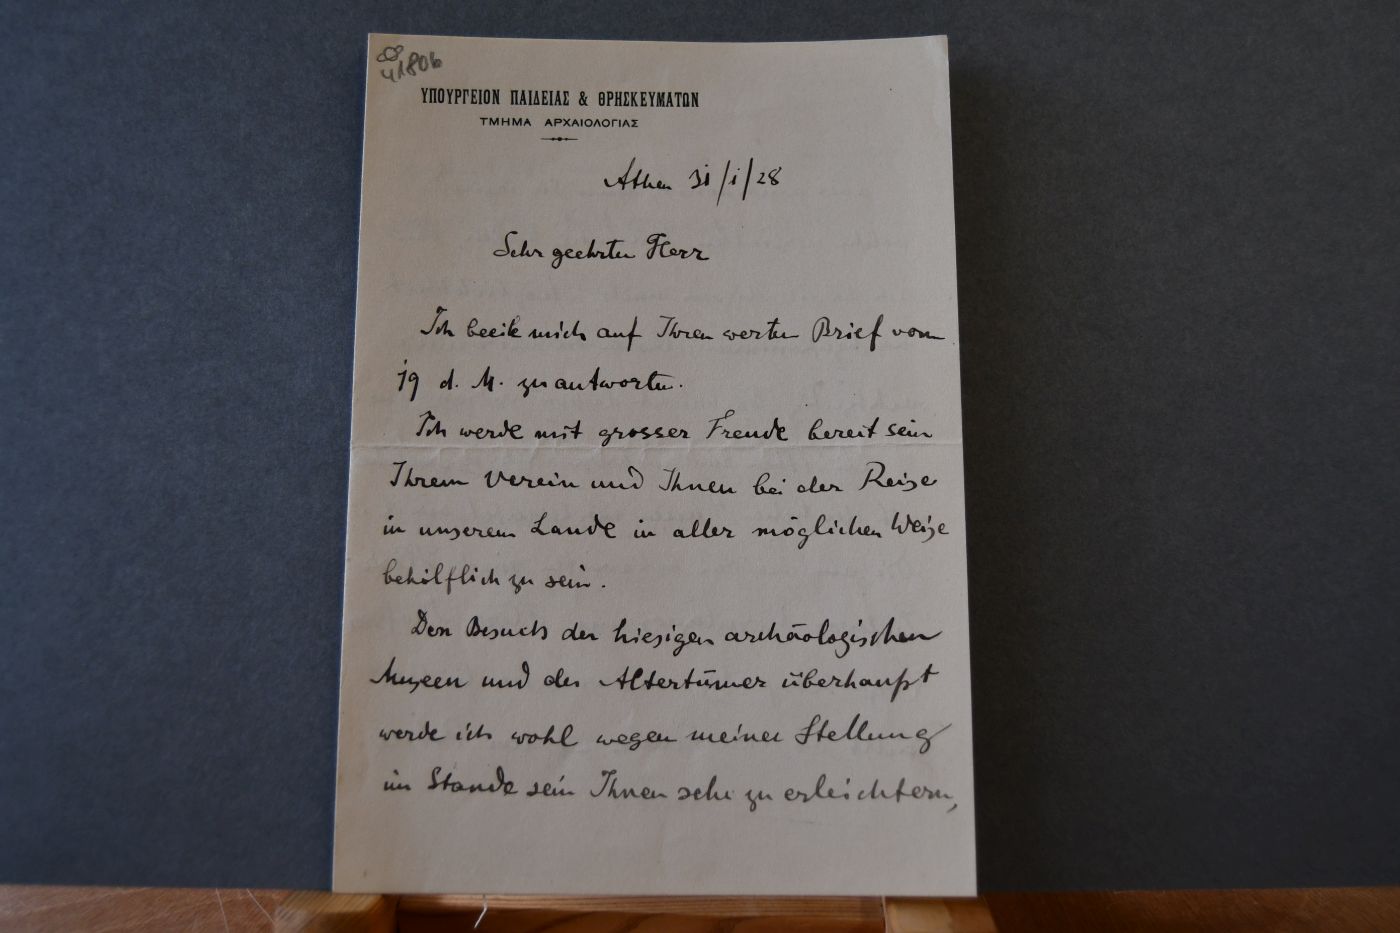 41806
ΥΠΟΥΡΓΕΙΟΝ ΠΑΙΔΕΙΑΣ & ΘΡΗΣΚΕΥΜΑΤΩΝ
ΤΜΗΜΑ ΑΡΧΑΙΟΛΟΓΙΑΣ
Athen 31/1/28
Sehr geehrter Herr
Ich beeile mich auf Ihren werten Brief vom
19 d. M. zu antworten.
Ich werde mit grosser Freude bereit sein
Ihrem Verein und Ihnen bei der Reise
in unserem Lande in aller möglichen Weise
behilflich zu sein.
Den Besuch der hiesigen archäologischen
Museen und der Altertümer überhaupt
werde ich wohl wegen meiner Stellung
im Stande sein Ihnen sehr zu erleichtern,